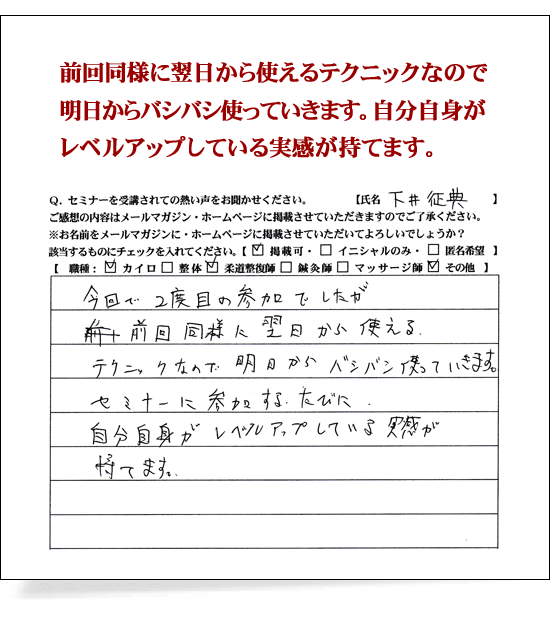 前回同様に翌日から使えるテクニックなので
明日からバシバシ使っていきます。自分自身が
レベルアップしている実感が持てます。
Q. セミナーを受講されての熱い声をお聞かせください。 【氏名 下井 征典 】
ご感想の内容はメールマガジン・ホームページに掲載させていただきますのでご了承ください。
※お名前をメールマガジンに・ホームページに掲載させていただいてよろしいでしょうか？
該当するものにチェックを入れてください。【 ☑ 掲載可・ □ イニシャルのみ・ □ 匿名希望 】
【 職種： ☑ カイロ □ 整体 ☑ 柔道整復師 □ 鍼灸師 □ マッサージ師 ☑ その他 】
今回で 2度目の参加でしたが
前回同様に 翌日から使える
テクニックなので 明日から バシバシ使っていきます。
セミナーに参加する.たびに.
自分自身が レベルアップしている実感が
持てます。